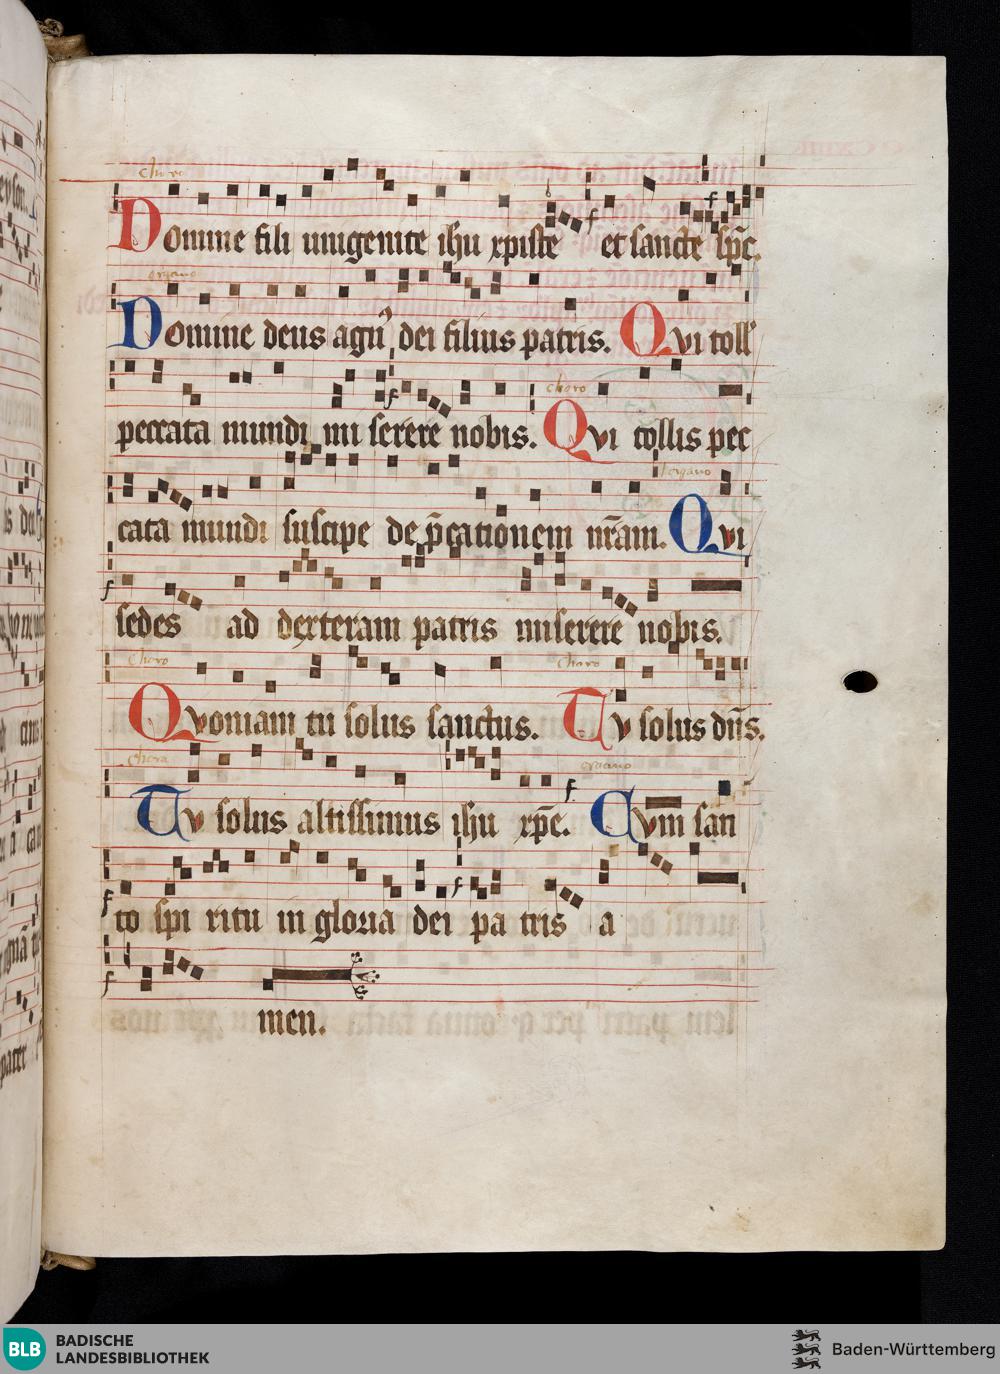 choro
Domine fili unigenite ihu xpiste et sancte sp̄c.
organo
Domine deus agn̄ dei filius patris. Qvi toll
peccata mundi mi serere nobis. Qvi tollis pec
choro
cata mundi suscipe de p̄cationem nr̄am. Qvi
organo
sedes ad dexteram patris miserere nobis.
Choro
Choro
Qvoniam tu solus sanctus. Tv solus dn̄s.
chora
organo
Tv solus altissimus ihu xp̄e. Cvm san
cto spi ritu in gloria dei pa tris a
men.
BLB BADISCHE LANDESBIBLIOTHEK
Baden-Württemberg